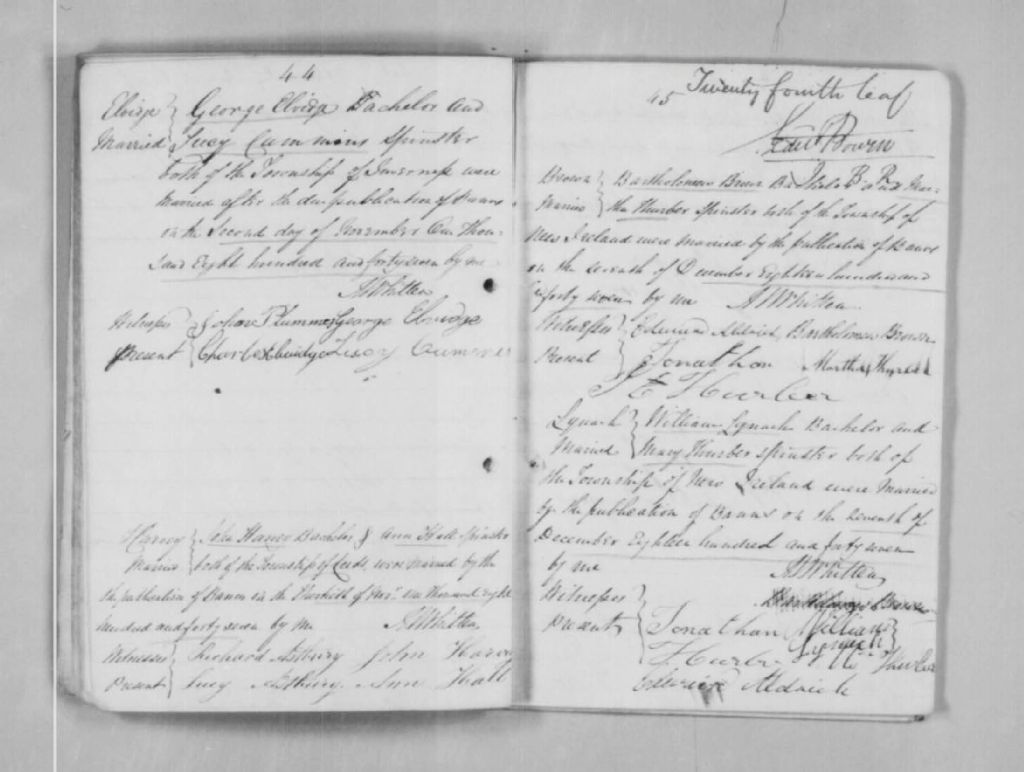 44
Elvidge } George Elvidge Bachelor and
Married } Lucy Cummins Spinster
both of the Township of Inverness were
Married after the due publication of Banns
on the Second day of November One Thou-
sand Eight hundred and forty seven by me
A Whitten
Witnesses } John Plummer George Elvidge
present } Charles Elvidge Lucy Cumens
Harvey { John Harvey Bachelor & Ann Hall Spinster
Married { both of the Township of Leeds were married by the
the publication of Banns on the of Novr one thousand eight
hundred and forty seven by me A Whitten
Witnesses } Richard Asbury John Harvey
Present } Lucy Asbury Ann Hall
45 Twenty fourth leaf
Edwd Bowen
J. B. P.
Brown } Bartholomew Brown Bachelor & Mar-
Married } tha Thurber Spinster both of the Township of
New Ireland were married by the publication of Banns
on the seventh of December Eighteen hundred and
forty seven by me A Whitten
Witnesses } Edmund Aldrich Bartholomew Brown
Present } Jonathan Martha Thurber
Thurber
Lynch } William Lynch Bachelor and
Married } Mary Thurber Spinster both of
the Township of New Ireland were married
by the publication of Banns on the seventh of
December Eighteen hundred and forty seven
by me A Whitten
Witnesses } Bartholomew Brown
Present } Jonathan William
Lynch
Thurber Thurber
Aldrich